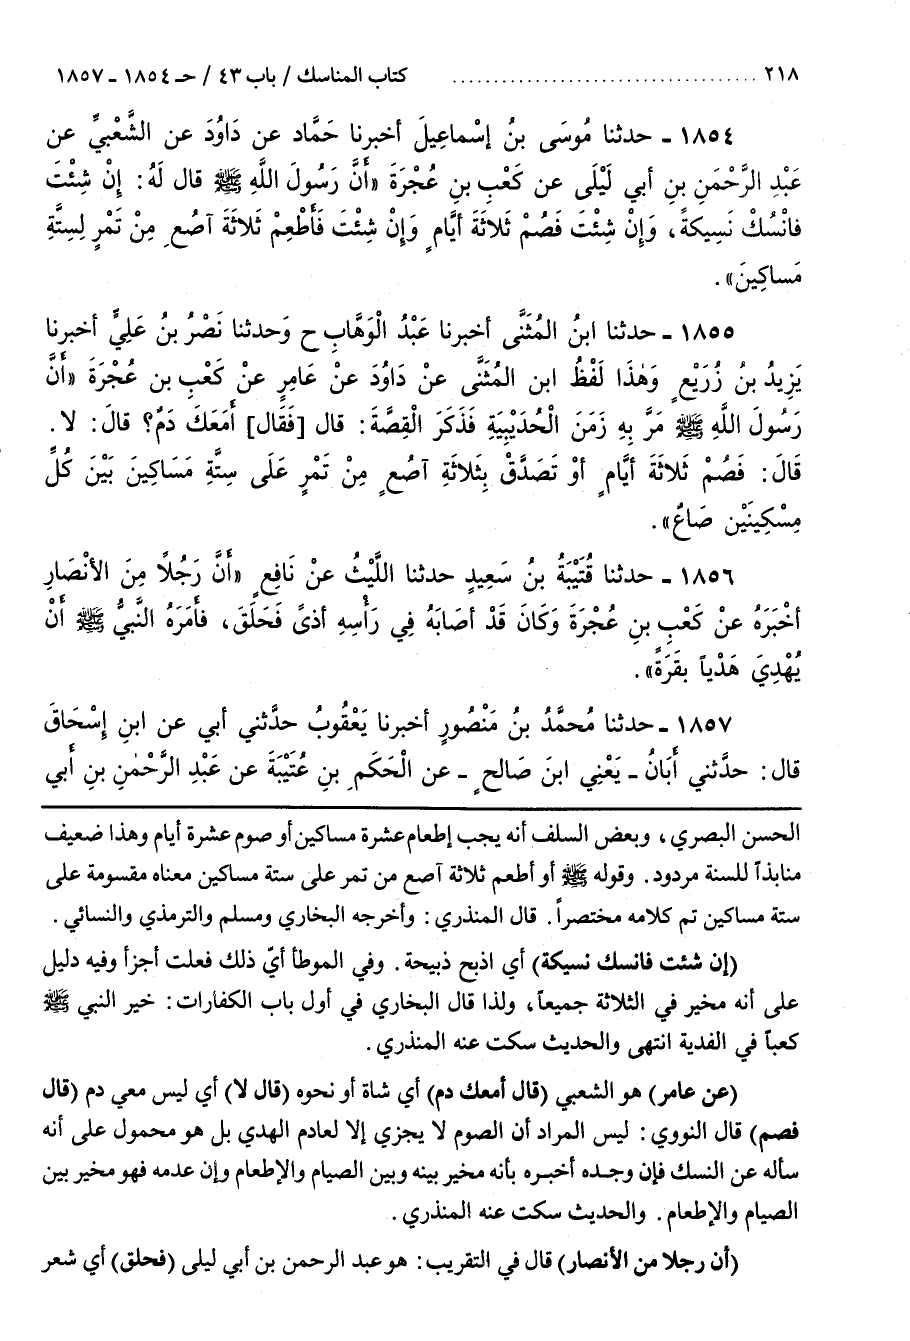 ٢١٨ ..................................... كتاب المناسك / باب ٤٣ / حـ ١٨٥٤ ـ ١٨٥٧
١٨٥٤ ـ حدثنا مُوسَى بنُ إسْماعِيلَ أخبرنا حَمَّاد عن دَاوُدَ عن الشَّعْبيِّ عن
عَبْدِ الرَّحْمَنِ بنِ أبي لَيْلَى عن كَعْبِ بنِ عُجْرَةَ «أنَّ رَسُولَ اللَّهِ ﷺ قال لَهُ: إنْ شِئْتَ
فانْسُكْ نَسِيكةً، وَإنْ شِئْتَ فَصُمْ ثَلاثَةَ أيَّامٍ وَإنْ شِئْتَ فَأَطْعِمْ ثَلاثَةَ آصُعٍ مِنْ تَمْرٍ لِستَّةِ
مَساكِينَ».
١٨٥٥ ـ حدثنا ابنُ المُثَنَّى أخبرنا عَبْدُ الْوَهَّابِ ح وَحدثنا نَصْرُ بنُ عَلِيٍّ أخبرنا
يَزِيدُ بنُ زُرَيْعٍ وَهٰذَا لَفْظُ ابن المُثَنَّى عنْ دَاوُدَ عنْ عَامِرٍ عنْ كَعْبِ بن عُجْرَةَ «أنَّ
رَسُولَ اللَّهِ ﷺ مَرَّ بِهِ زَمَنَ الْحُدَيْبِيَةِ فَذَكَرَ الْقِصَّةَ: قال [فَقَال] أَمَعَكَ دَمٌ؟ قالَ: لا.
قَالَ: فَصُمْ ثَلاثَةَ أيَّامٍ أوْ تَصَدَّقْ بِثَلاثَةِ آصُعٍ مِنْ تَمْرٍ عَلَى سِتَّةِ مَسَاكِينَ بَيْنَ كُلِّ
مِسْكِينَيْنِ صَاعٌ».
١٨٥٦ ـ حدثنا قُتَيْبَةُ بنُ سَعِيدٍ حدثنا اللَّيْثُ عنْ نَافِعٍ «أنَّ رَجُلًا مِنَ الأنْصَارِ
أخْبَرَهُ عنْ كَعْبِ بنِ عُجْرَةَ وَكَانَ قَدْ أصَابَهُ فِي رَأْسِهِ أذىً فَحَلَقَ، فأمَرَهُ النَّبيُّ ﷺ أنْ
يُهْدِيَ هَدْياً بقَرَةً».
١٨٥٧ ـ حدثنا مُحمَّدُ بنُ مَنْصُورٍ أخبرنا يَعْقُوبُ حدَّثني أبي عن ابنِ إسْحَاقَ
قال: حدَّثني أَبَانُ ـ يَعْنِي ابنَ صَالحٍ ـ عن الْحَكَمِ بنِ عُتَيْبَةَ عن عَبْدِ الرَّحْمٰنِ بنِ أبي
الحسن البصري، وبعض السلف أنه يجب إطعام عشرة مساكين أو صوم عشرة أيام وهذا ضعيف
منابذاً للسنة مردود. وقوله ﷺ أو أطعم ثلاثة آصع من تمر على ستة مساكين معناه مقسومة على
ستة مساكين تم كلامه مختصراً. قال المنذري: وأخرجه البخاري ومسلم والترمذي والنسائي.
(إن شئت فانسك نسيكة) أي اذبح ذبيحة. وفي الموطأ أيّ ذلك فعلت أجزأ وفيه دليل
على أنه مخير في الثلاثة جميعاً، ولذا قال البخاري في أول باب الكفارات: خير النبي ﷺ
كعباً في الفدية انتهى والحديث سكت عنه المنذري.
(عن عامر) هو الشعبي (قال أمعك دم) أي شاة أو نحوه (قال لا) أي ليس معي دم (قال
فصم) قال النووي: ليس المراد أن الصوم لا يجزي إلا لعادم الهدي بل هو محمول على أنه
سأله عن النسك فإن وجده أخبره بأنه مخير بينه وبين الصيام والإطعام وإن عدمه فهو مخير بين
الصيام والإطعام. والحديث سكت عنه المنذري.
(أن رجلا من الأنصار) قال في التقريب: هو عبد الرحمن بن أبي ليلى (فحلق) أي شعر